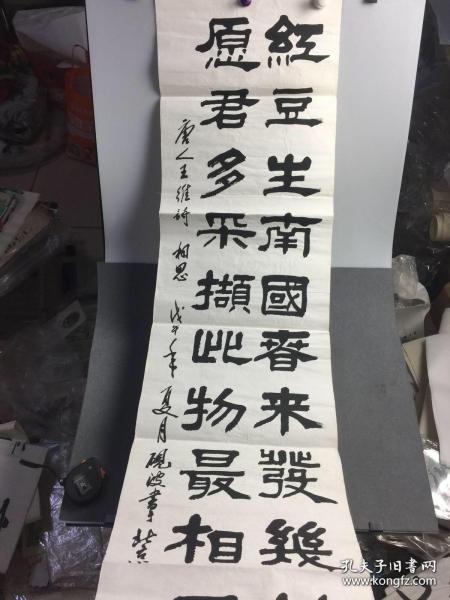 紅豆生南國春来發幾
愿君多采擷此物最相
唐人王維詩 相思 戊子年夏月 硯波書於
孔夫子旧书网
www.kongfz.com